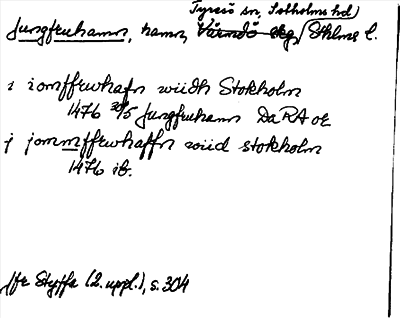 Tyresö sn, Sotholms hd
Jungfruhamn, hamn, Värmdö skg, Sthlms l.
i iomffrwhafn widh Stokholm
1476 30/5 Jungfruhamn DaRA or
j jommffrwhaffn wiid stokholm
1476 ib.
jfr Styffe (2. uppl.), s. 304